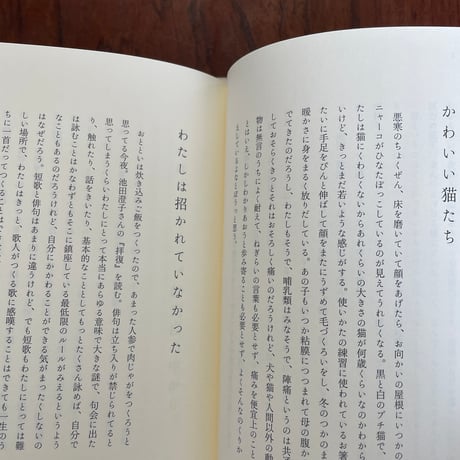 かわいい猫たち
悪寒のちょくぜん、床を磨いていて顔をあげたら、お向かいの屋根にいつかの
ニャーコがひなたぼっこしているのが見えてうれしくなる。黒と白のブチ猫で、
たしは猫にくわしくないからあれくらいの大きさの猫が何歳くらいなのかわから
いけど、きっとまだ若いような感じがする。使いかたの練習に使われているお箸
たいに手足をぴんと伸ばして顔はうずめて毛づくろいをし、冬のつかのまの
暖かさに身をまるく放りだしている。あの子もいつか粘膜につつまれて母の腹か
でてきたのだろうし、わたしもそうで、哺乳類はみなそうで、陣痛というのは共
しておそらくきっとそれはおそろしく痛いのだろうけれど、犬や猫や人間以外の動
物は無言のうちによく耐えて、ねぎらいの言葉も必要とせず、痛みを便宜上のこと
とはいえ、しかしわかりあおうと歩み寄ることも必要とせず、よくそんなのくりか
えしているよなとぼうっと思う。
わたしは招かれていなかった
おとといは炊き込みご飯をつくったので、あまった人参で肉じゃがをつくろうと
思ってる今夜。池田澄子さんの『拝復』を読む。俳句は立ち入りが禁じられてると
思ってしまうくらいわたしにとって本当にあらゆる意味で大きな謎で、句会に出た
り、触れたり、話をきいたり、基本的なこととしてもっとたくさん詠めば、自分で
は詠むことはかなわずともそこに鎮座している最低限のルールがみえるというよう
なこともあるのだろうけれど、自分にかかわることができる気がまったくしないの
はなぜだろう。短歌と俳句はあまりに違うけれど、でも短歌もわたしにとっては難
しい場所で、わたしはきっと、歌人がつくる歌に感嘆することはできても一生のう
ちに一首だってつくること